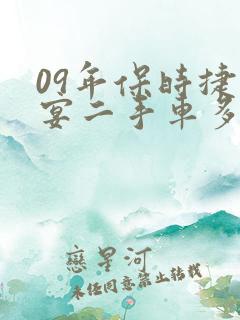 09年保时捷
宴二手车多
戀星河
未经同意禁止转载